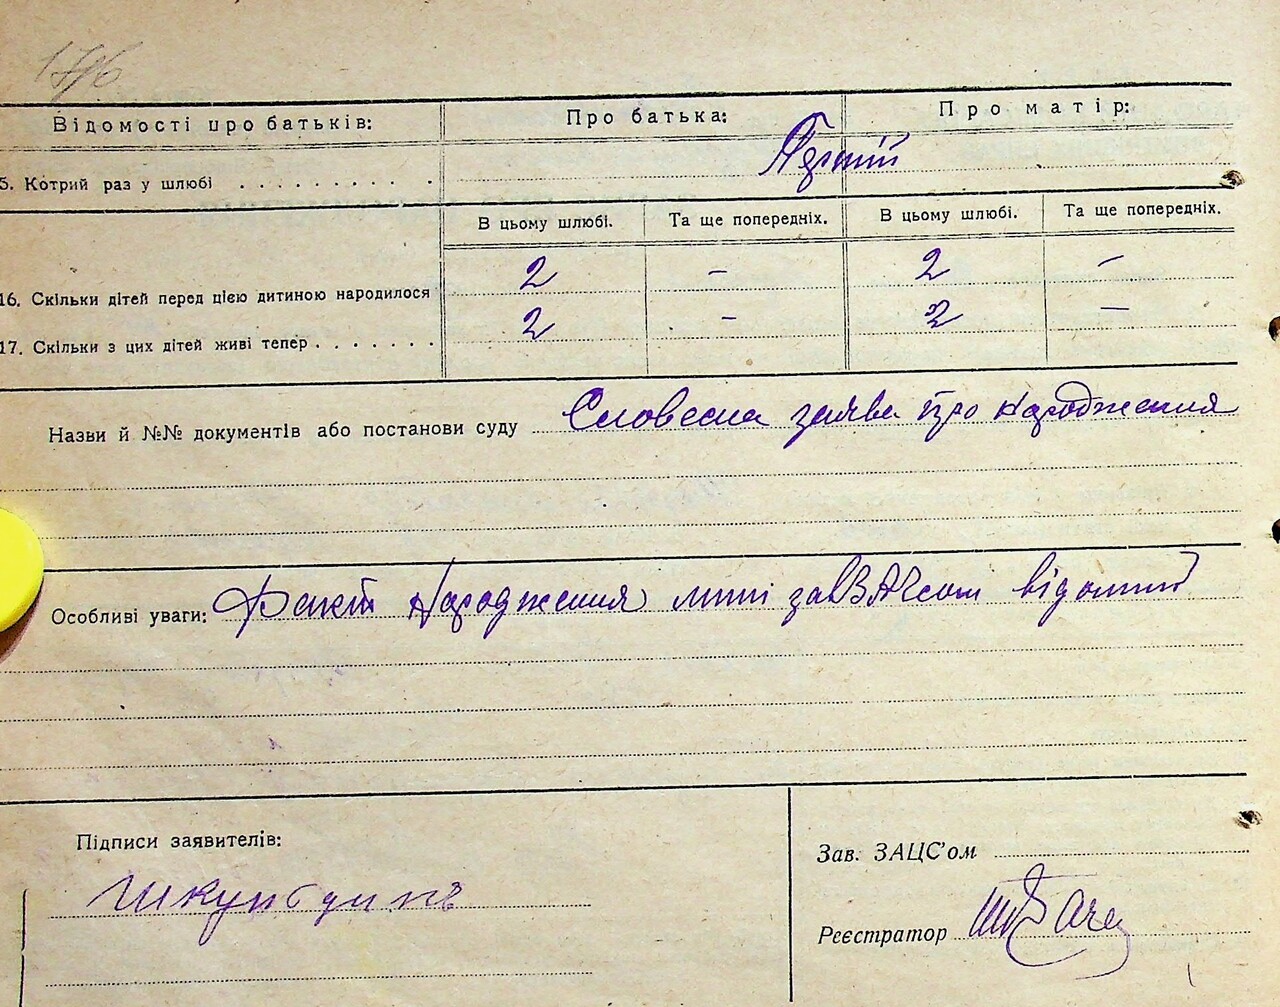 176
Відомості про батьків: Про батька: Про матір:
5. Котрий раз у шлюбі . . . . . . . . . . Перший
В цьому шлюбі. Та ще попередніх. В цьому шлюбі. Та ще попередніх.
16. Скільки дітей перед цією дитиною народилося 2 – 2 –
17. Скільки з цих дітей живі тепер . . . . . . . 2 – 2 –
Назви й №№ документів або постанови суду Словесна заява про народження
Особливі уваги: Факт народження мині відомий
Підписи заявителів:
Зав. ЗАЦС'ом
Реєстратор